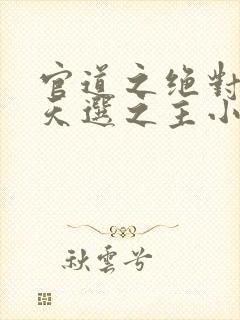 官道之绝對
天選之主小
秋雲兮